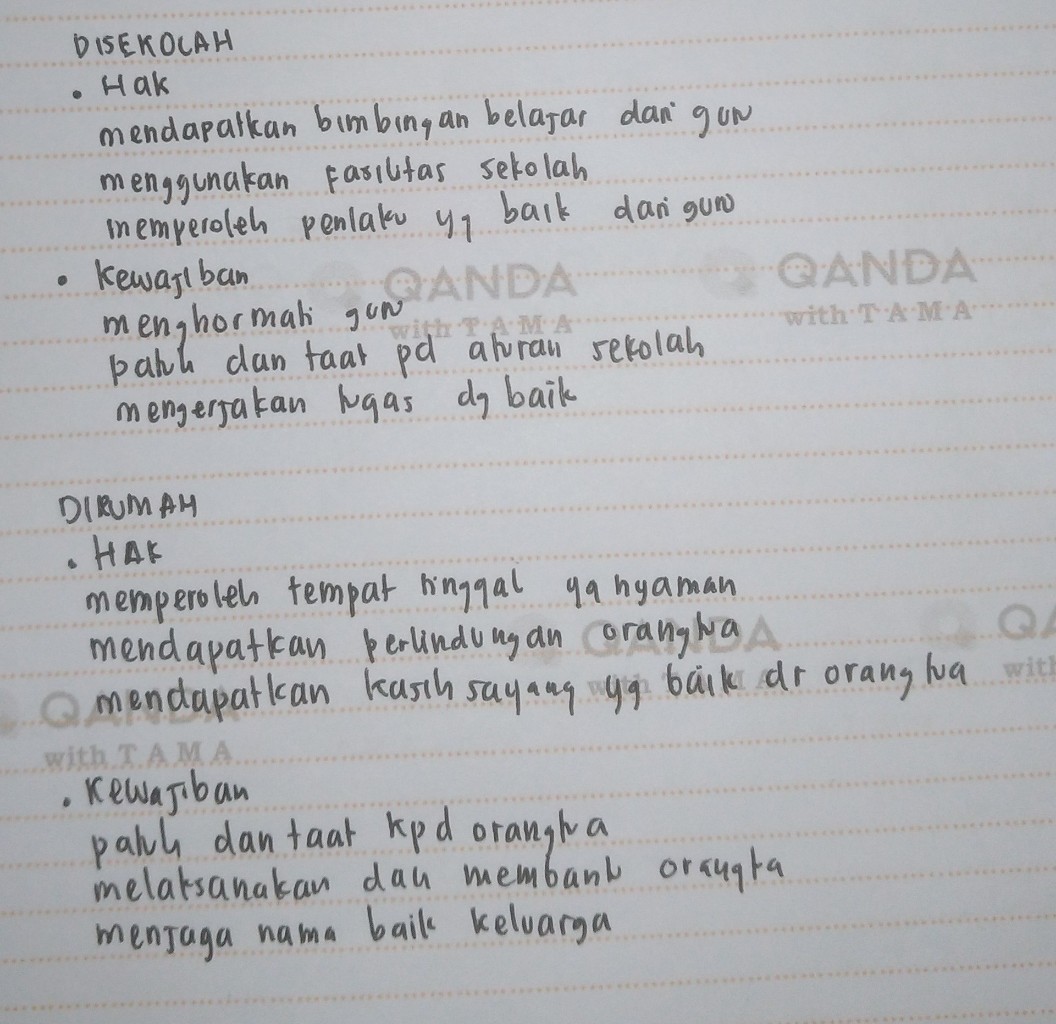 DISEKOLAH
• Hak
mendapatkan bimbingan belajar dari guru
menggunakan fasilitas sekolah
memperoleh perilaku yg baik dari guru
• Kewajiban
menghormati guru
patuh dan taat pd aturan sekolah
mengerjakan tugas dg baik
DIRUMAH
• HAK
memperoleh tempat tinggal yg nyaman
mendapatkan perlindungan orangtua
mendapatkan kasih sayang yg baik dr orang tua
• Kewajiban
patuh dan taat kpd orangtua
melaksanakan dan membantu orangta
menjaga nama baik keluarga
QANDA
with TAMA
QANDA
with TAMA
QANDA
with TAMA
QANDA
with TAMA
QA
with